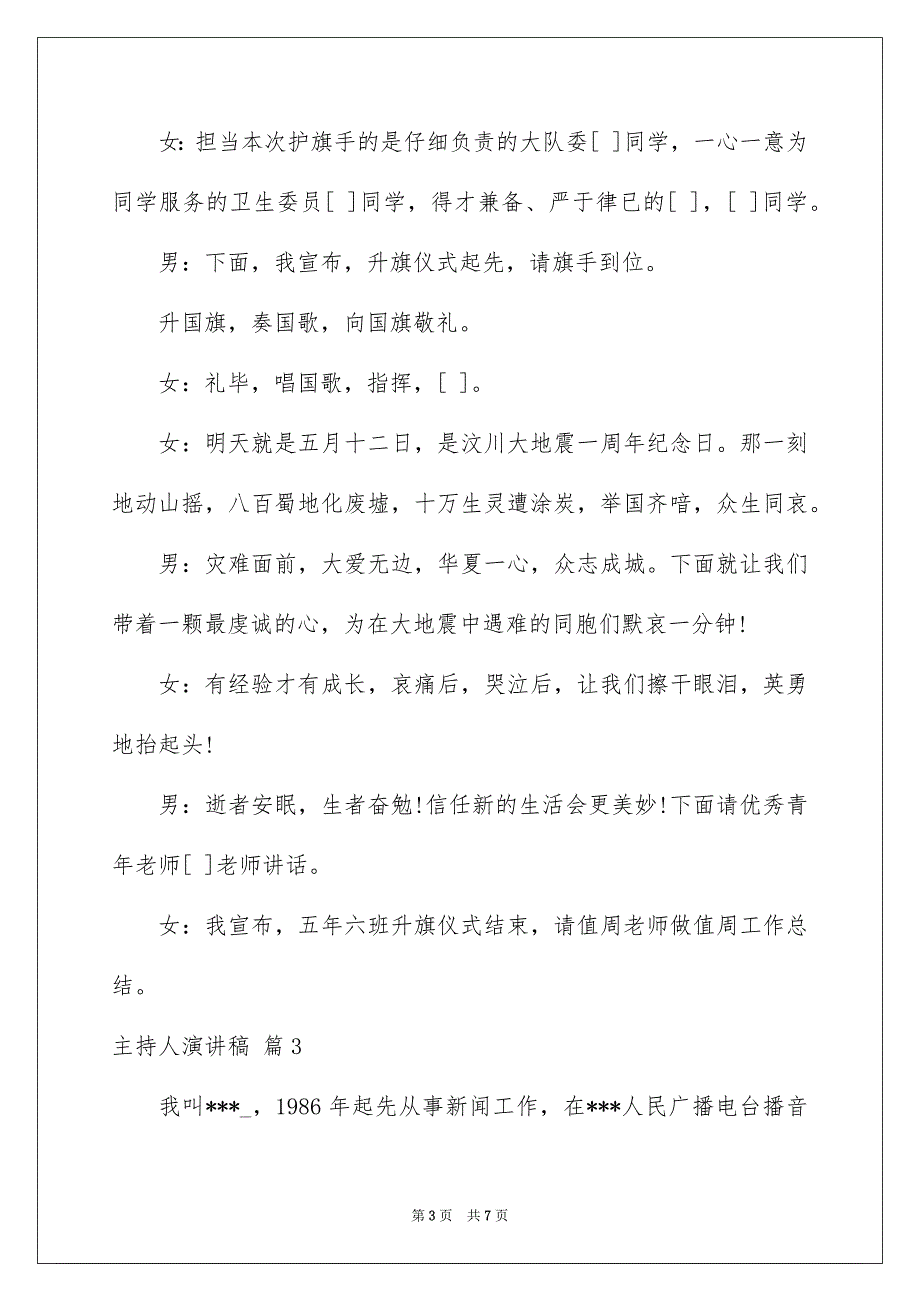 女：担当本次护旗手的是仔细负责的大队委[ ]同学，一心一意为
同学服务的卫生委员[ ]同学，得才兼备、严于律已的[ ]，[ ]同学。
男：下面，我宣布，升旗仪式起先，请旗手到位。
升国旗，奏国歌，向国旗敬礼。
女：礼毕，唱国歌，指挥，[ ]。
女：明天就是五月十二日，是汶川大地震一周年纪念日。那一刻
地动山摇，八百蜀地化废墟，十万生灵遭涂炭，举国齐喑，众生同哀。
男：灾难面前，大爱无边，华夏一心，众志成城。下面就让我们
带着一颗最虔诚的心，为在大地震中遇难的同胞们默哀一分钟!
女：有经验才有成长，哀痛后，哭泣后，让我们擦干眼泪，英勇
地抬起头!
男：逝者安眠，生者奋勉!信任新的生活会更美妙!下面请优秀青
年老师[ ]老师讲话。
女：我宣布，五年六班升旗仪式结束，请值周老师做值周工作总
结。
主持人演讲稿 篇3
我叫***_，1986年起先从事新闻工作，在***人民广播电台播音
第3页 共7页